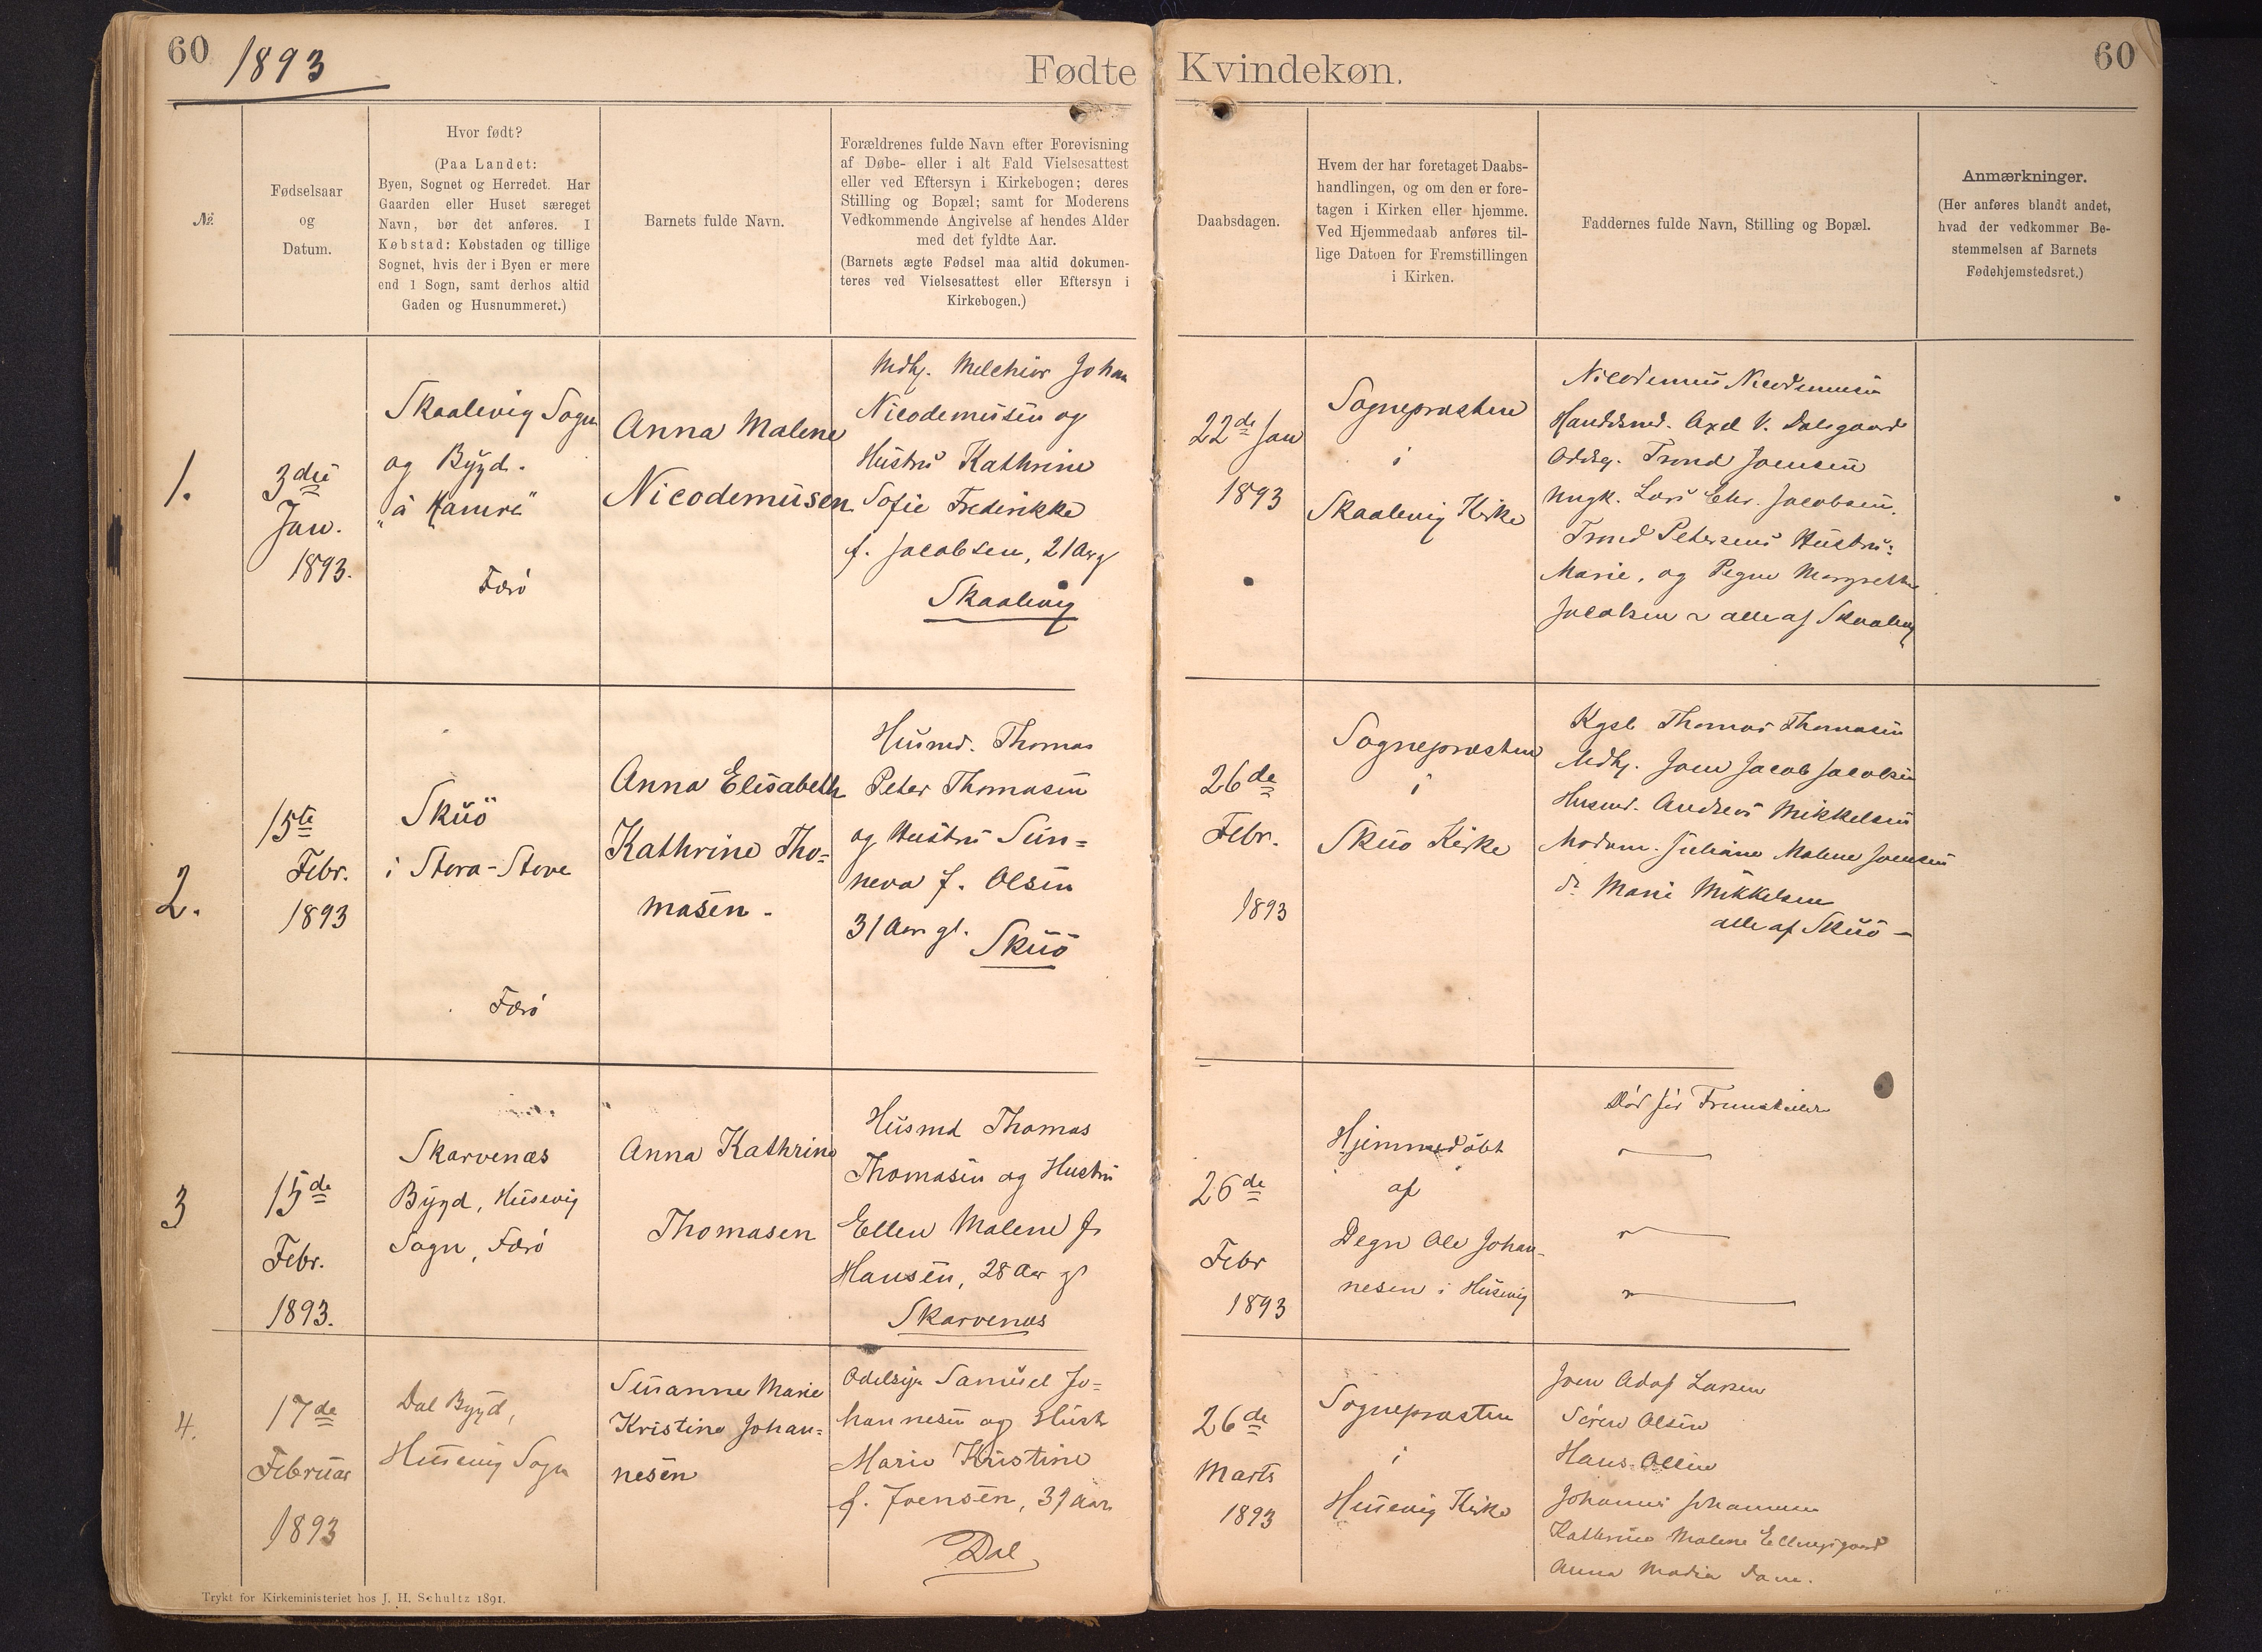 60
1893
Fødte
Kvindekøn.
60
№.
Fødselsaar
og
Datum.
Hvor født?
(Paa Landet:
Byen, Sognet og Herredet. Har
Gaarden eller Huset særeget
Navn, bør det anføres. I
Købstad: Købstaden og tillige
Sognet, hvis der i Byen er mere
end 1 Sogn, samt derhos altid
Gaden og Husnummeret.)
Barnets fulde Navn.
Forældrenes fulde Navn efter Forevisning
af Døbe- eller i alt Fald Vielsesattest
eller ved Eftersyn i Kirkebogen; deres
Stilling og Bopæl; samt for Moderens
Vedkommende Angivelse af hendes Alder
med det fyldte Aar.
(Barnets ægte Fødsel maa altid dokumen-
teres ved Vielsesattest eller Eftersyn i
Kirkebogen.)
Daabsdagen.
Hvem der har foretaget Daabs-
handlingen, og om den er fore-
tagen i Kirken eller hjemme.
Ved Hjemmedaab anføres til-
lige Datoen for Fremstillingen
i Kirken.
Faddernes fulde Navn, Stilling og Bopæl.
Anmærkninger.
(Her anføres blandt andet,
hvad der vedkommer Be-
stemmelsen af Barnets
Fødehjemstedsret.)
1.
3die
Jan.
1893.
Skaalevig Sogn
og Bygd.
"á Hamre"
Færö
Anna Malene
Nicodemusen
Mdhj. Melchior Johan
Nicodemusen og
Hustru Kathrine
Sofie Frederikke
f. Jacobsen, 21 Aar g
Skaalevig
22de Jan
1893
Sognepræsten
i
Skaalevig Kirke
Nicodemus Nicodemusen
Axel V. Dalsgaard
Trond Joensen
Ungk. Lars Chr. Jacobsen.
Trond Petersens Hustru:
Marie, og Pigen Margrethe
Jacobsen alle af Skaalevig
2.
15te
Febr.
1893
Skuö
i Stora-Stove
Færö
Anna Elisabeth
Kathrine Tho=
masen.
Husmd. Thomas
Peter Thomasen
og Hustru Sun=
neva f. Olsen
31 Aar gl.
Skuö
26de
Febr.
1893
Sognepræsten
i
Skuö Kirke
Kgsb Thomas Thomasen
Mdhj. Joen Jacob Jacobsen
Husmd. Andreas Mikkelsen
Juliane Malene Joensen
do Marie Mikkelsen
alle af Skuö -
3
15de
Febr.
1893.
Skarvenæs
Bygd, Husevig
Sogn, Færö
Anna Kathrine
Thomasen
Husmd Thomas
Thomasen og Hustru
Ellen Malene f.
Hansen, 28 Aar gl
Skarvenæs
26de
Febr
1893
Hjemmedöbt
af
Degn Ole Johan-
nesen i Husevig
Död för
4.
17de
Februar
1893
Dal Bygd,
Husevig Sogn
Susanne Marie
Kristine Johan=
nesen
Odelsbj. Samuel Jo=
hannesen og Hustr
Marie Kristine
f. Joensen, 39 Aar
Dal
26de
Marts
1893
Sognepræsten
i
Husevig Kirke
Joen Adof Larsen
Sören Olsen
Hans Olsen
Johannes Johannesen
Kathrine Malene Ellingsgaard
Anna Maria Dam.
Trykt for Kirkeministeriet hos J. H. Schultz 1891.